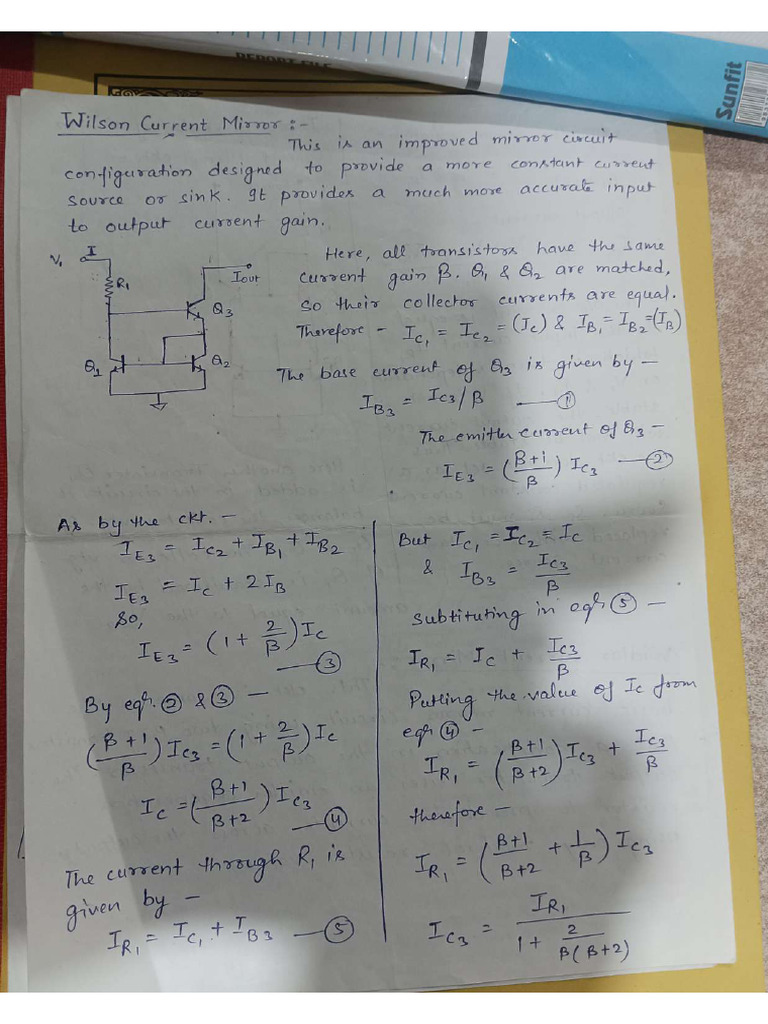 REPORT FILE
Sunfit
Wilson Current Mirror :-
This is an improved mirror circuit
configuration designed to provide a more constant current
source or sink. It provides a much more accurate input
to output current gain.
V₁ I
R₁
Iout
Q3
Q1
Q2
Here, all transistors have the same
current gain β. Q₁ & Q₂ are matched,
so their collector currents are equal.
Therefore - I_C₁ = I_C₂ = (I_C) & I_B₁ = I_B₂ = (I_B)
The base current of Q₃ is given by —
I_B₃ = I_C3/β —— ①
The emitter current of Q₃ —
I_E₃ = (β+1/β) I_C₃ —— ②
As by the ckt. —
I_E₃ = I_C₂ + I_B₁ + I_B₂
I_E₃ = I_C + 2I_B
So,
I_E₃ = (1 + 2/β) I_C
—— ③
By eqn. ② & ③ —
(β+1/β) I_C₃ = (1 + 2/β) I_C
I_C = (β+1/β+2) I_C₃
—— ④
The current through R₁ is
given by —
I_R₁ = I_C₁ + I_B₃ —— ⑤
But I_C₁ = I_C₂ = I_C
& I_B₃ = I_C₃/β
Subtituting in eqn ⑤ —
I_R₁ = I_C + I_C₃/β
Putting the value of I_C from
eqn ④ —
I_R₁ = (β+1/β+2) I_C₃ + I_C₃/β
therefore —
I_R₁ = (β+1/β+2 + 1/β) I_C₃
I_C₃ = I_R₁/1 + 2/β(β+2)